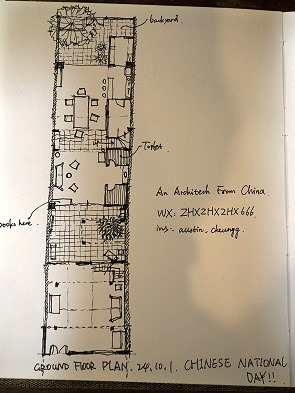 backyard
Toilet
An Architech From China
WX: ZHX2HX2HX666
ins: austin_cheungg
books here
GROUND FLOOR PLAN. 24.10.1. CHINESE NATIONAL
DAY!!